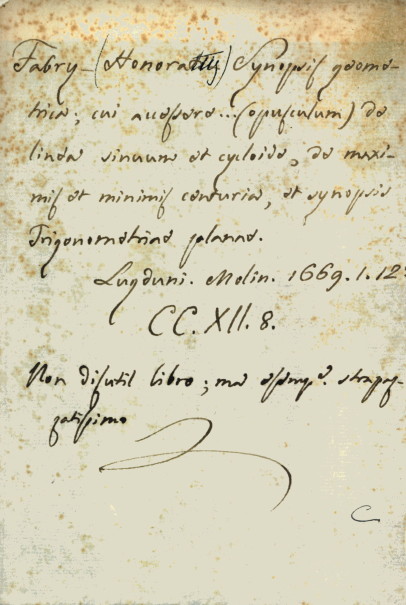 Fabry (Honoratus) Synopsis geome-
trica; cui accessere...(opusculum) de
linea sinuum et cycloide, de maxi-
mis et minimis centuria, et synopsis
Trigonometriae planae.
Lugduni. Molin. 1669. 1. 12.
CC. XII. 8.
Non disutil libro; ma esemp.e strapaz-
zatissimo
C